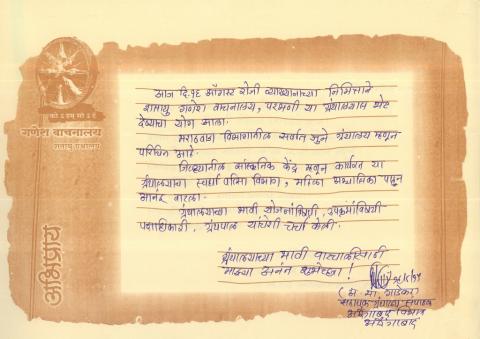 गणेश वाचनालय
शतायु ग्रंथालय
अभिप्राय
आज दि. १६ ऑगस्ट रोजी व्याख्यानाच्या निमित्ताने
शतायु गणेश वाचनालय, परभणी या ग्रंथालयास भेट
देण्याचा योग आला.
मराठवाडा विभागातील सर्वात जुने ग्रंथालय म्हणून
परिचित आहे.
जिल्ह्यातील सांस्कृतिक केंद्र म्हणून कार्यरत या
ग्रंथालयाचा स्पर्धा परिक्षा विभाग, महिला अभ्यासिका पाहून
आनंद वाटला.
ग्रंथालयाच्या भावी योजनांविषयी, उपक्रमांविषयी
पदाधिकारी, ग्रंथपाल यांचेशी चर्चा केली.
ग्रंथालयाच्या भावी वाटचालीसाठी
माझ्या अनंत शुभेच्छा!
सहायक ग्रंथालय संचालक
औरंगाबाद विभाग
औरंगाबाद